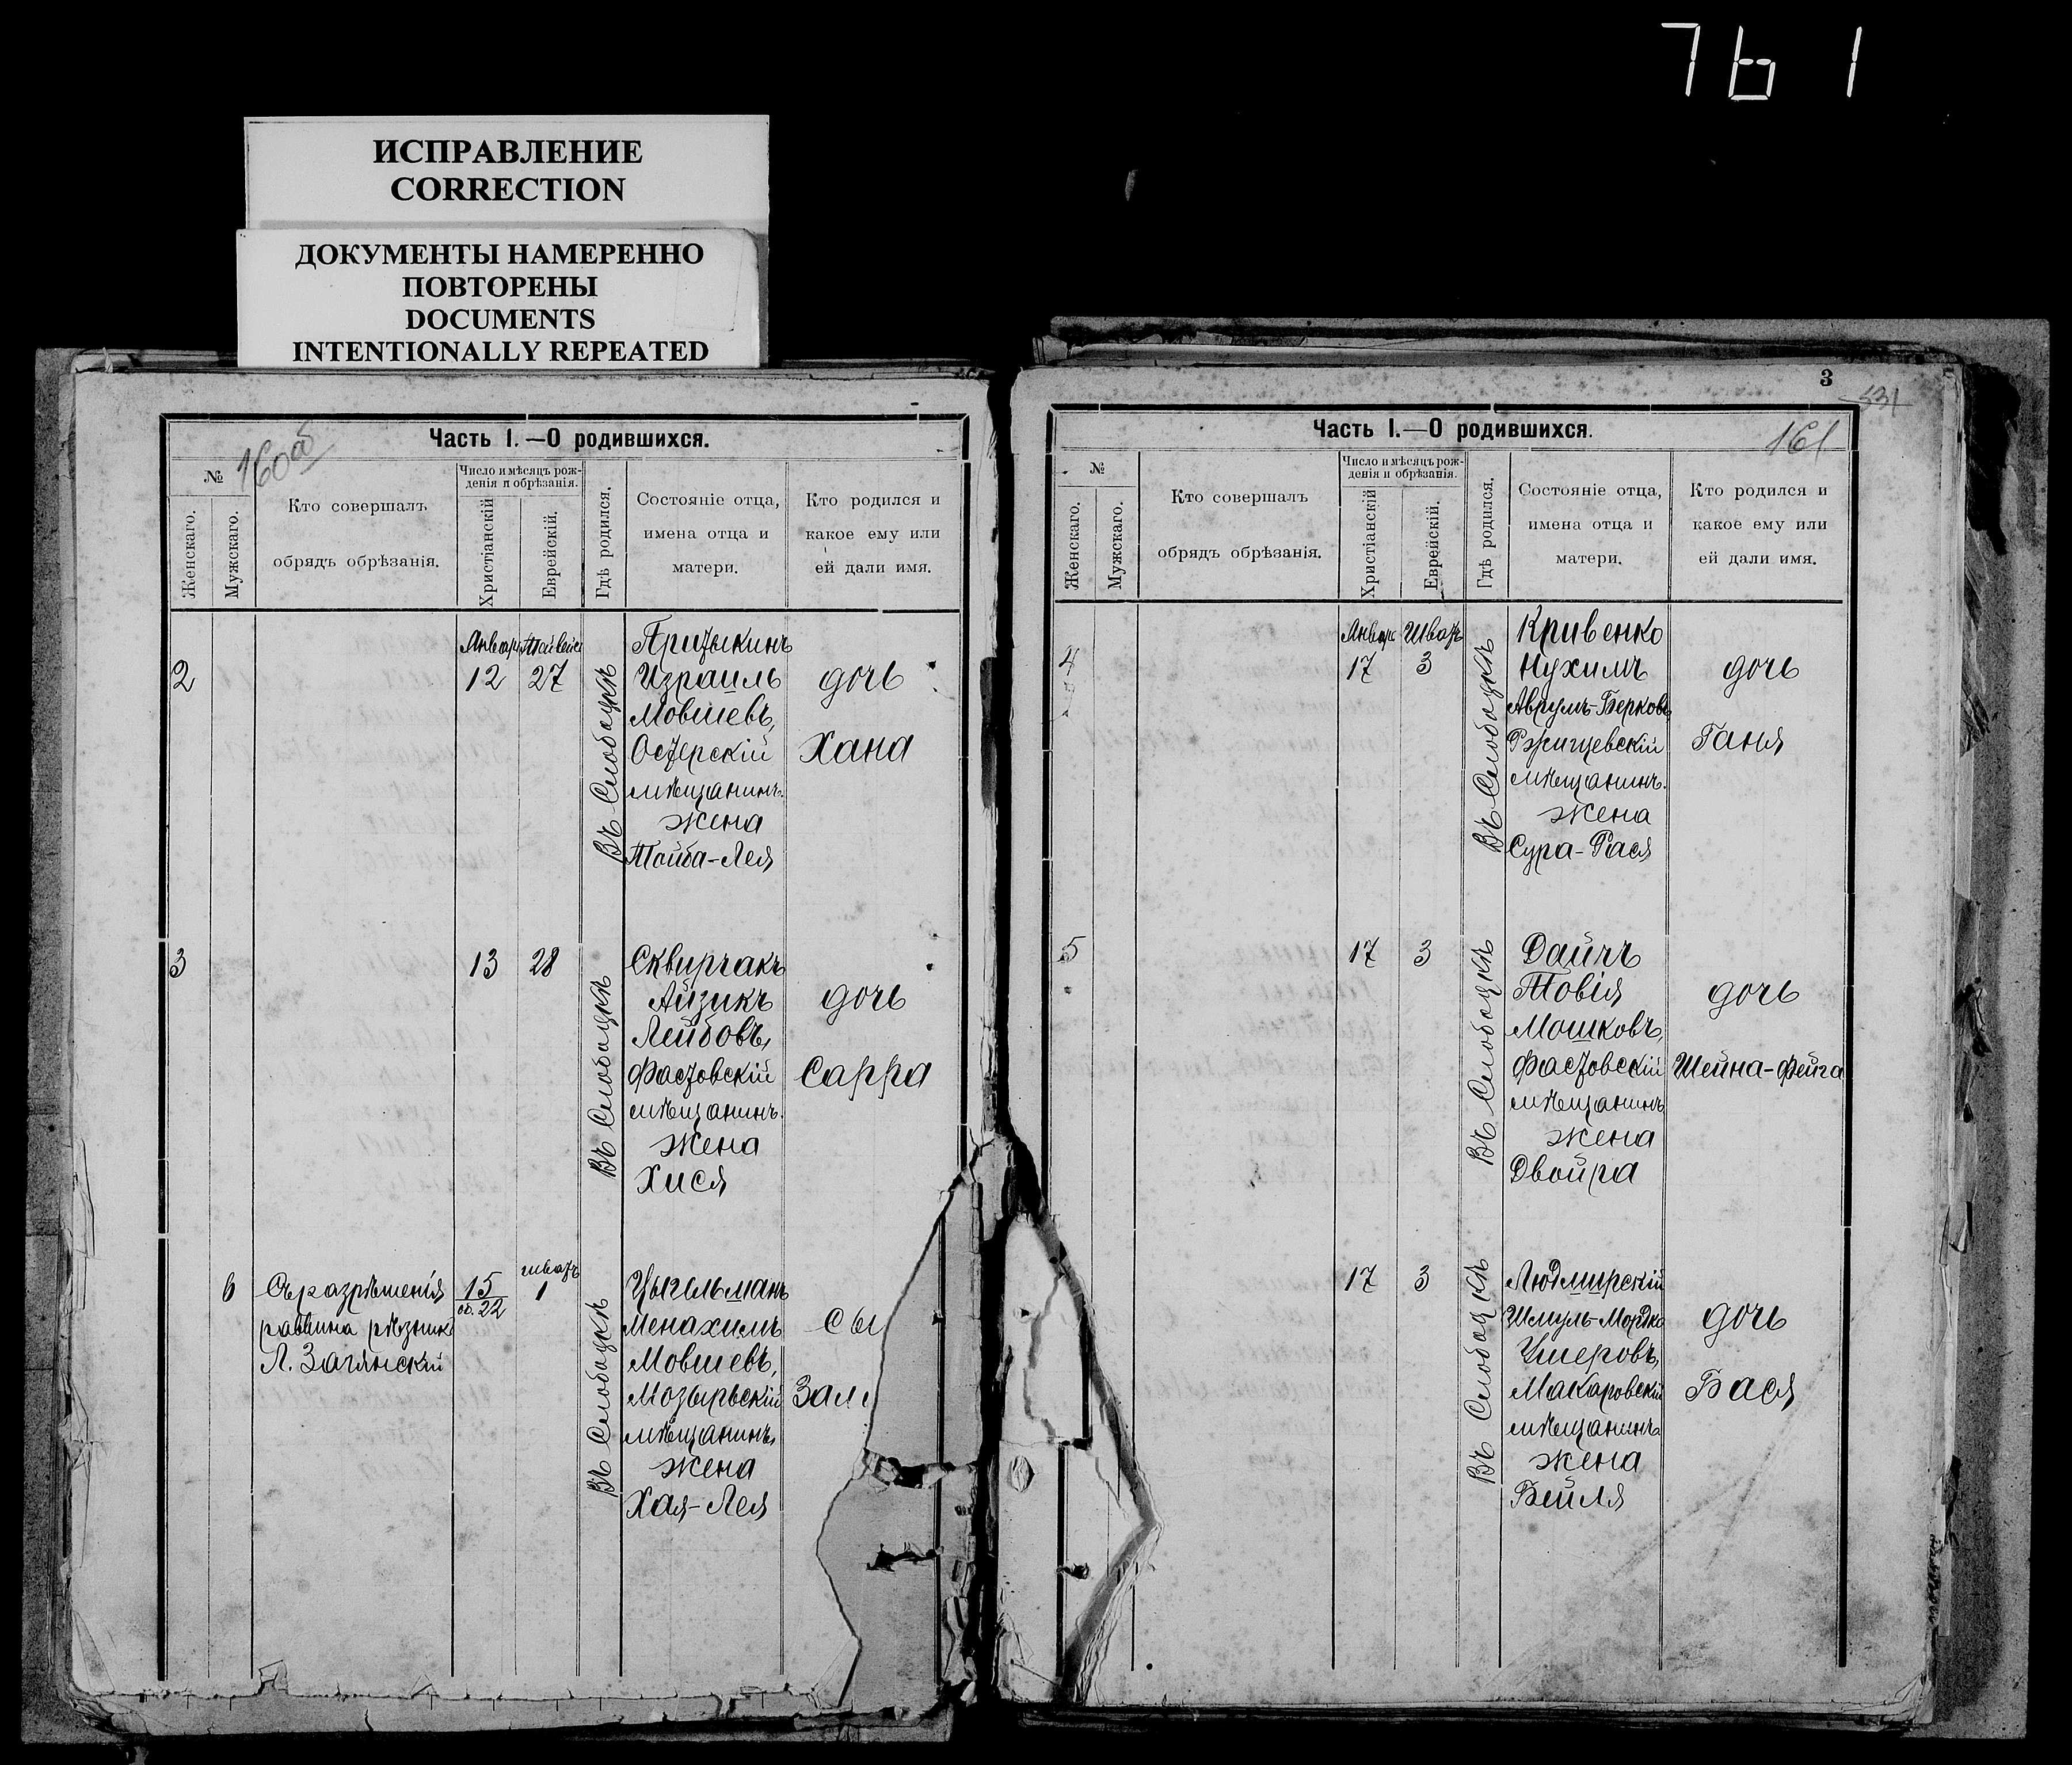 761
ИСПРАВЛЕНИЕ
CORRECTION
ДОКУМЕНТЫ НАМЕРЕННО
ПОВТОРЕНЫ
DOCUMENTS
INTENTIONALLY REPEATED
160об
Часть I.—О родившихся.
№
Женскаго.
Мужскаго.
Кто совершалъ
обрядъ обрѣзанія.
Число и мѣсяцъ рож-
денія и обрѣзанія.
Христіанскій
Еврейскій.
Гдѣ родился.
Состояніе отца,
имена отца и
матери.
Кто родился и
какое ему или
ей дали имя.
2
Январ
12
27
Въ Слободкѣ
Притыкинъ
Израиль
Мовшевъ,
Остерскій
мѣщанинъ.
жена
Тойба-Лея
дочь
Хана
3
13
28
Въ Слободкѣ
Сквирчакъ
Айзикъ
Лейбовъ,
Фастовскій
мѣщанинъ.
жена
Хися
дочь
Сарра
6
Съ разрѣшенія
раввина рѣзник
Л. Заглянскій
15
об. 22
шватъ
1
Въ Слободкѣ
Цыгельманъ
Менахимъ
Мовшевъ,
Мозырьскій
мѣщанинъ,
жена
Хая-Лея
сы
3
531
161
Часть I.—О родившихся.
№
Женскаго.
Мужскаго.
Кто совершалъ
обрядъ обрѣзанія.
Число и мѣсяцъ рож-
денія и обрѣзанія.
Христіанскій
Еврейскій.
Гдѣ родился.
Состояніе отца,
имена отца и
матери.
Кто родился и
какое ему или
ей дали имя.
4
Январ
17
Шватъ
3
Въ Слободкѣ
Кривенко
Нухимъ
Аврумъ-Берковъ
Ржищевскій
мѣщанинъ.
жена
Сура-Рася
дочь
Ганя
5
17
3
Въ Слободкѣ
Дайчъ
Товія
Мошковъ,
Фастовскій
мѣщанинъ
жена
Двойра
дочь
Шейна-Фейга
17
3
Въ Слободкѣ
Людмирскій
Шмуль-Мордко
Ушеровъ,
Макаровскій
мѣщанинъ
жена
Бейля
дочь
Бася